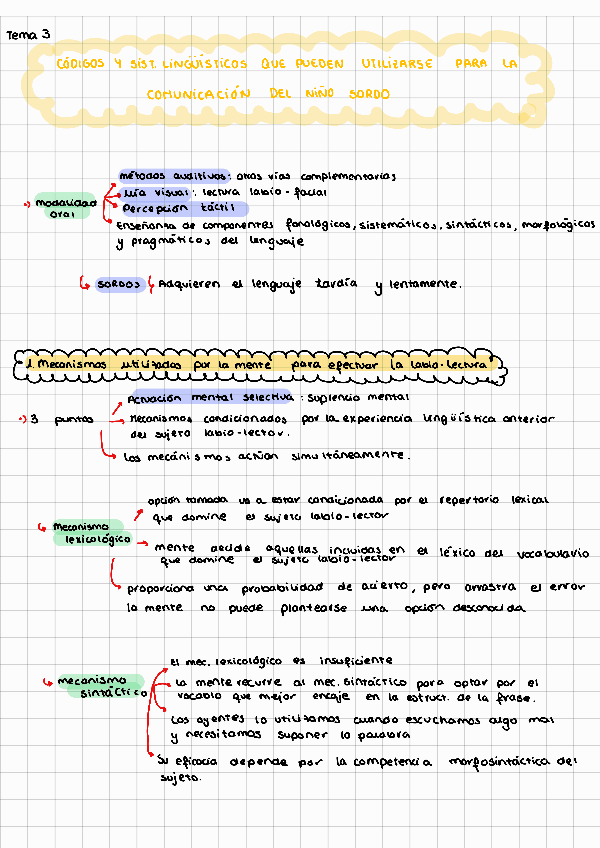 Tema 3
CÓDIGOS Y SIST. LINGÜÍSTICOS QUE PUEDEN UTILIZARSE PARA LA
COMUNICACIÓN DEL NIÑO SORDO
métodos auditivos: otras vías complementarias
Vía visual: lectura labio-facial
Percepción táctil
modalidad
oral
Enseñanza de componentes fonológicos, sistemáticos, sintácticos, morfológicos
y pragmáticos del lenguaje
SORDOS Adquieren el lenguaje tardía y lentamente.
1. Mecanismos utilizados por la mente para efectuar la labio-lectura
Actuación mental selectiva: suplencia mental
3 puntos Mecanismos condicionados por la experiencia lingüística anterior
del sujeto labio-lector.
Los mecánismos actúan simultáneamente.
opción tomada va a estar condicionada por el repertorio lexical
que domine el sujeto labio-lector
Mecanismo
lexicológico
mente decide aquellas incluidas en el léxico del vocabulario
que domine el sujeto labio-lector
proporciona una probabilidad de acierto, pero arrastra el error
la mente no puede plantearse una opción desconocida
El mec. lexicológico es insuficiente
mecanismo
sintáctico
La mente recurre al mec. sintáctico para optar por el
vocablo que mejor encaje en la estruct. de la frase.
Los oyentes lo utilizamos cuando escuchamos algo mal
y necesitamos suponer la palabra
Su eficacia depende por la competencia morfosintáctica del
sujeto.